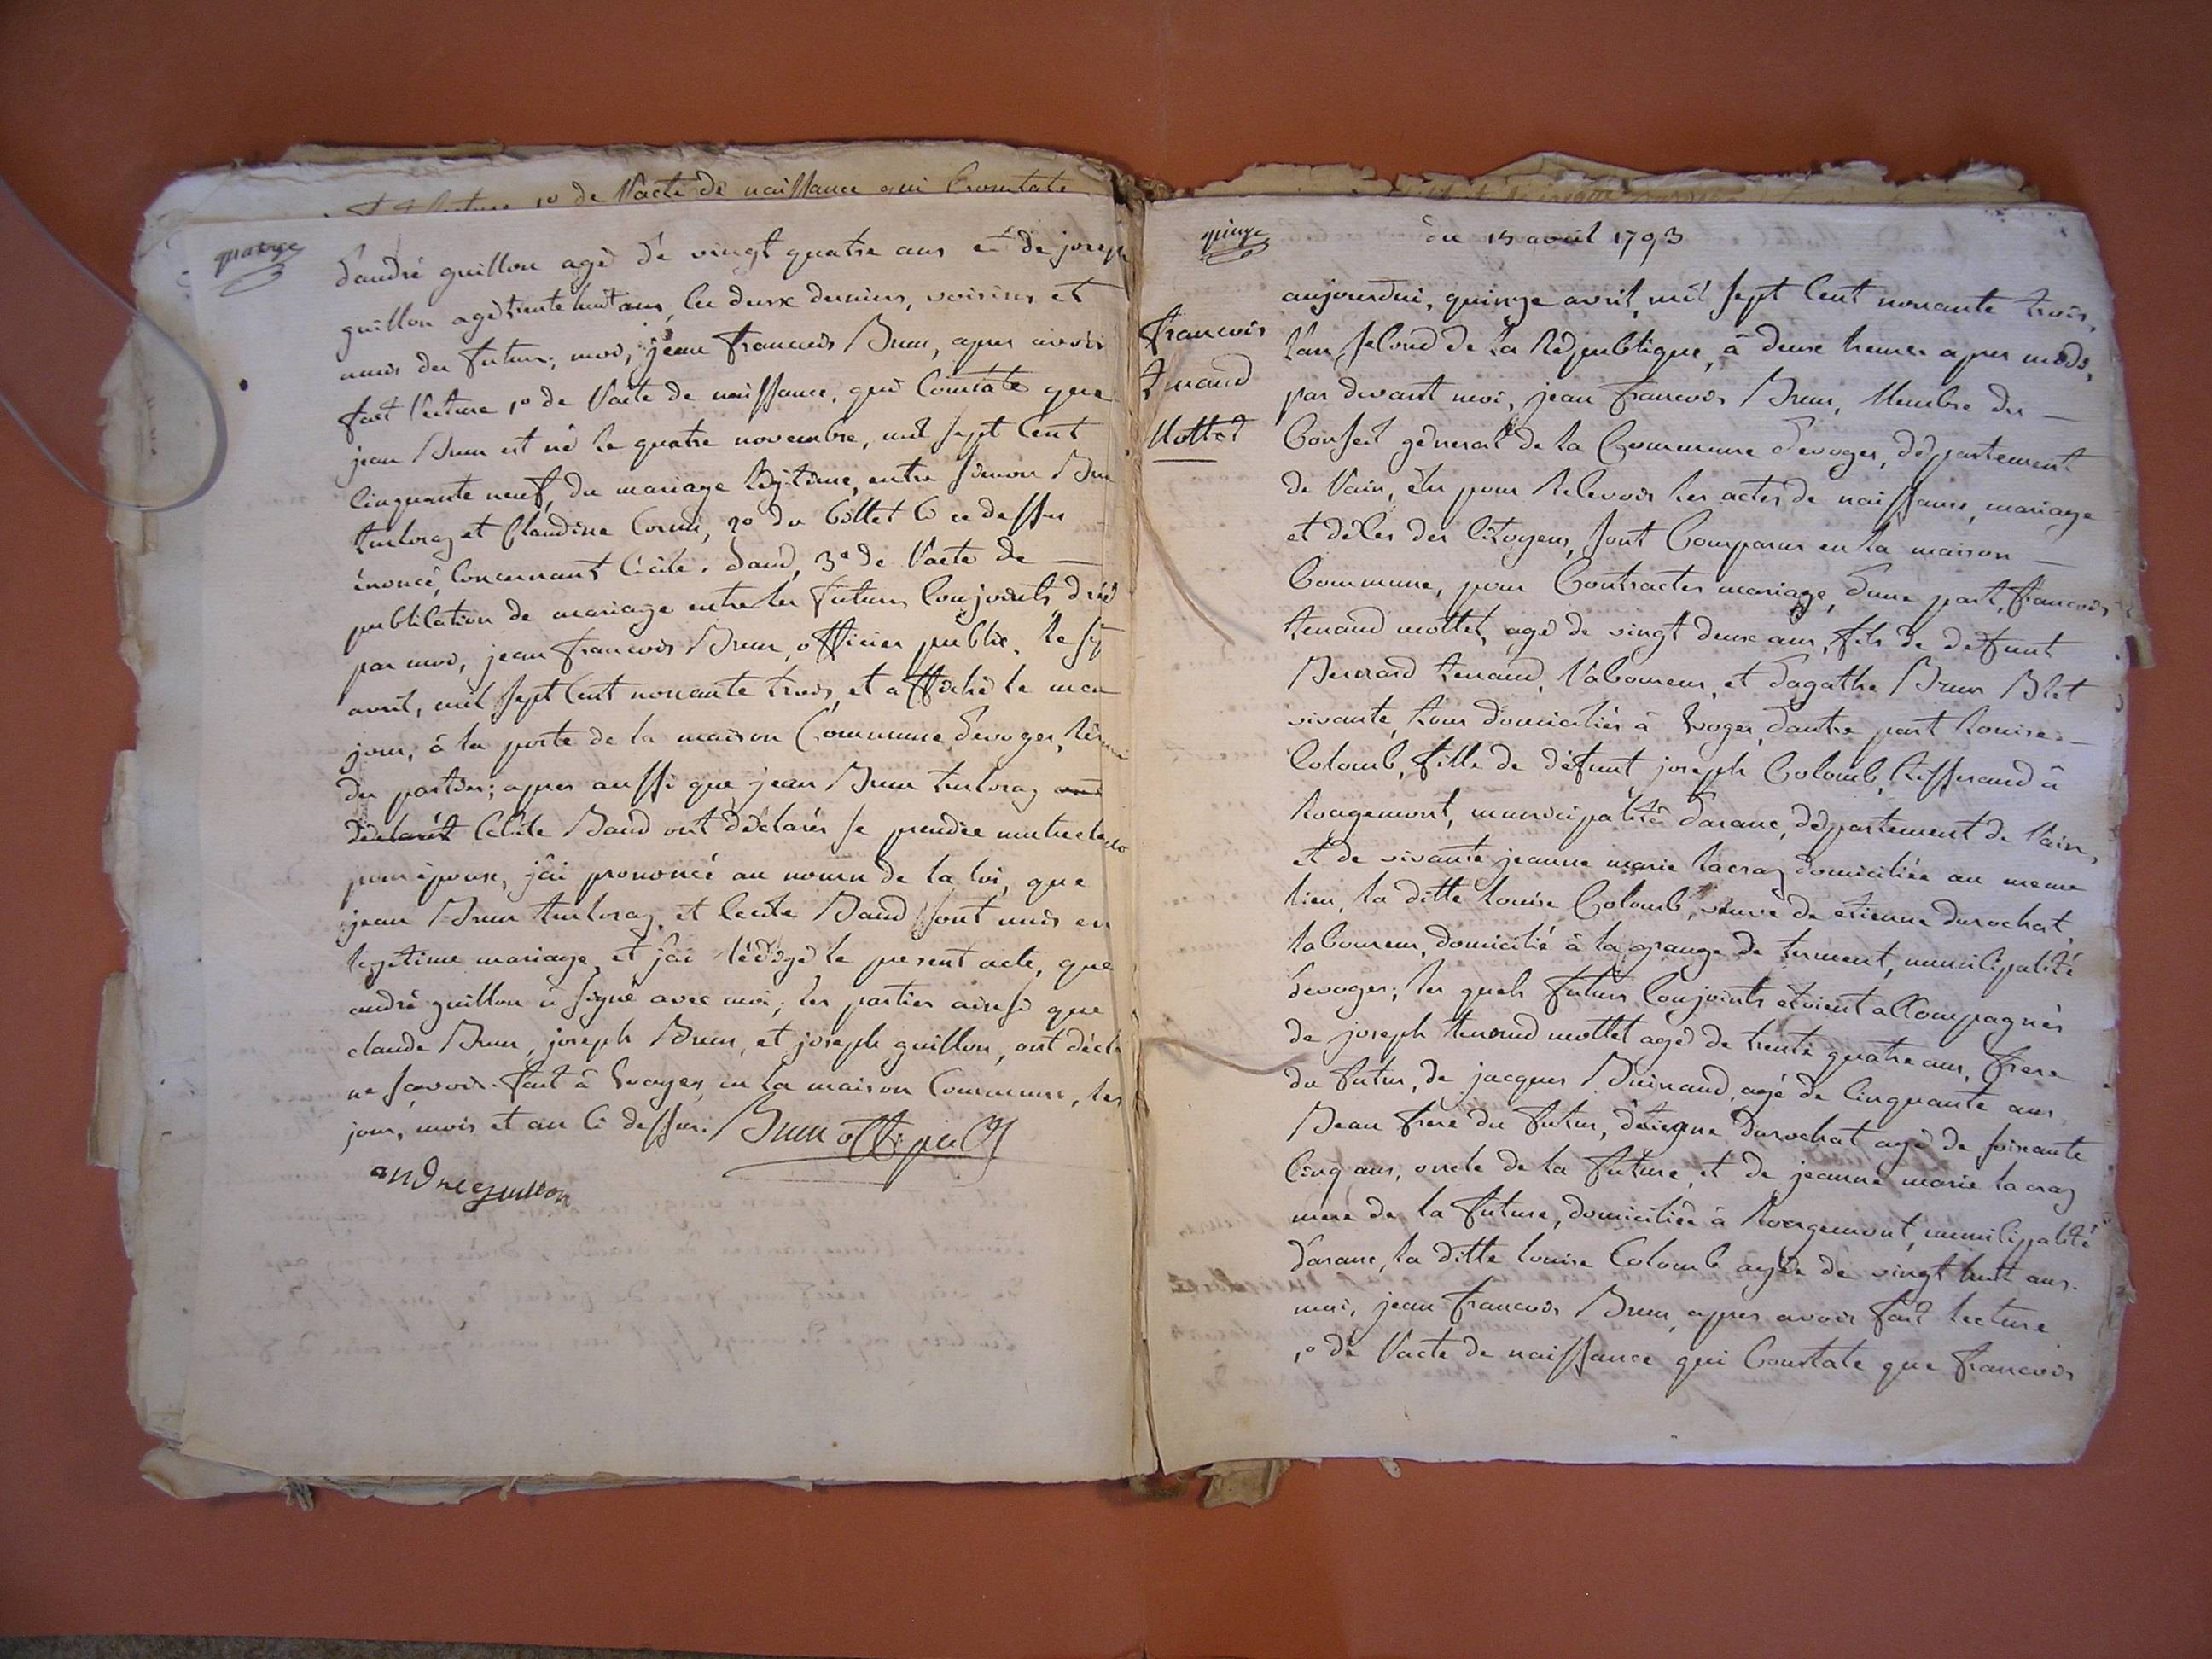 1º de l'acte de naissance qui Constate
quatorze
d'andré guillon agé de vingt quatre ans et de joseph
guillon agé trente huit ans, les deux derniers, voisins et
amis du futur; moi, jean francois Brun, apres avoir
fait lecture 1º de l'acte de naissance, qui Constate que
jean Brun est né le quatre novembre, mil sept Cent
Cinquante neuf, du mariage légitime, entre simon Brun
turloraz et Claudine Cornu, 2º du billet Ci ce dessus
énoncé, Concernant Cécile Baud, 3º de l'acte de
publication de mariage entre les futurs Conjoints, dréé
par moi, jean francois Brun, officier public, le sept
avril, mil sept Cent nonante trois, et affiché le meme
jour, à la porte de la maison Commune d'evoges,
des parties; apres aussi que jean Brun turloraz et
déclarét Cécile Baud ont déclarés se prendre mutuellement
pour épouse, j'ai prononcé au nomn de la loi, que
jean Brun turloraz, et Cecile Baud sont unis en
legitime mariage, et j'ai rédigé le present acte, que
andré guillon a signé avec moi; les parties ainsi que
claude Brun, joseph Brun, et joseph guillon, ont déclaré
ne sçavoir. fait à Evoges, en la maison Commune, les
jour, mois et an Ci dessus. Brun off. public
andre guillon
quinze
du 15 avril 1793
francois
tenand
Mottet
aujourdui, quinze avril, mil sept Cent nonante trois,
l'an second de la république, à deux heures apres midi,
par devant moi, jean francois Brun, Membre du
Conseil géneral de la Commune d'evoges, département
de l'ain, élu pour recevoir les actes de naissance, mariage
et décès des Citoyens, sont Comparus en la maison
Commune, pour Contracter mariage, d'une part, francois
tenand mottet, agé de vingt deux ans, fils de défunt
Bernard tenand, laboureur, et d'agathe Brun Blet
vivante, tous domiciliés à Evoges, d'autre part Louise
Colomb, fille de défunt joseph Colomb, tisserand à
Rougemont, municipalité d'arane, département de l'ain,
et de vivante jeanne marie lacraz domiciliée au meme
lieu, la ditte Louise Colomb, veuve de etienne durochat
laboureur, domicilié à la grange de terment, municipalité
d'evoges; les quels futurs Conjoints étoient accompagnés
de joseph tenand mottet agé de trente quatre ans, frere
du futur, de jacques Guinand, agé de Cinquante ans
Beau frere du futur, d'etienne durochat agé de soixante
Cinq ans, oncle de la future, et de jeanne marie lacraz
mere de la future, domiciliée à Rougemont, municipalité
d'arane, la ditte louise Colomb agée de vingt huit ans.
moi, jean francois Brun, apres avoir fait lecture
1º de l'acte de naissance qui Constate que francois